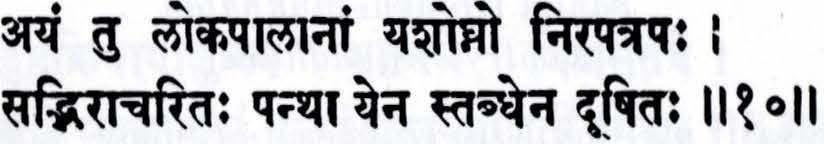 अयं तु लोकपालानां यशोघ्नो निरपत्रपः ।
सद्भिराचरितः पन्था येन स्तब्धेन दूषितः ॥१०॥